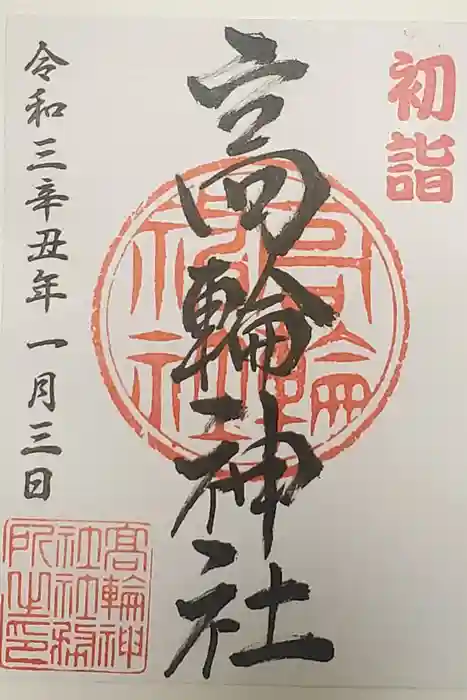 初詣
高輪神社
令和三辛丑年一月三日
高輪神
社社務
所之印